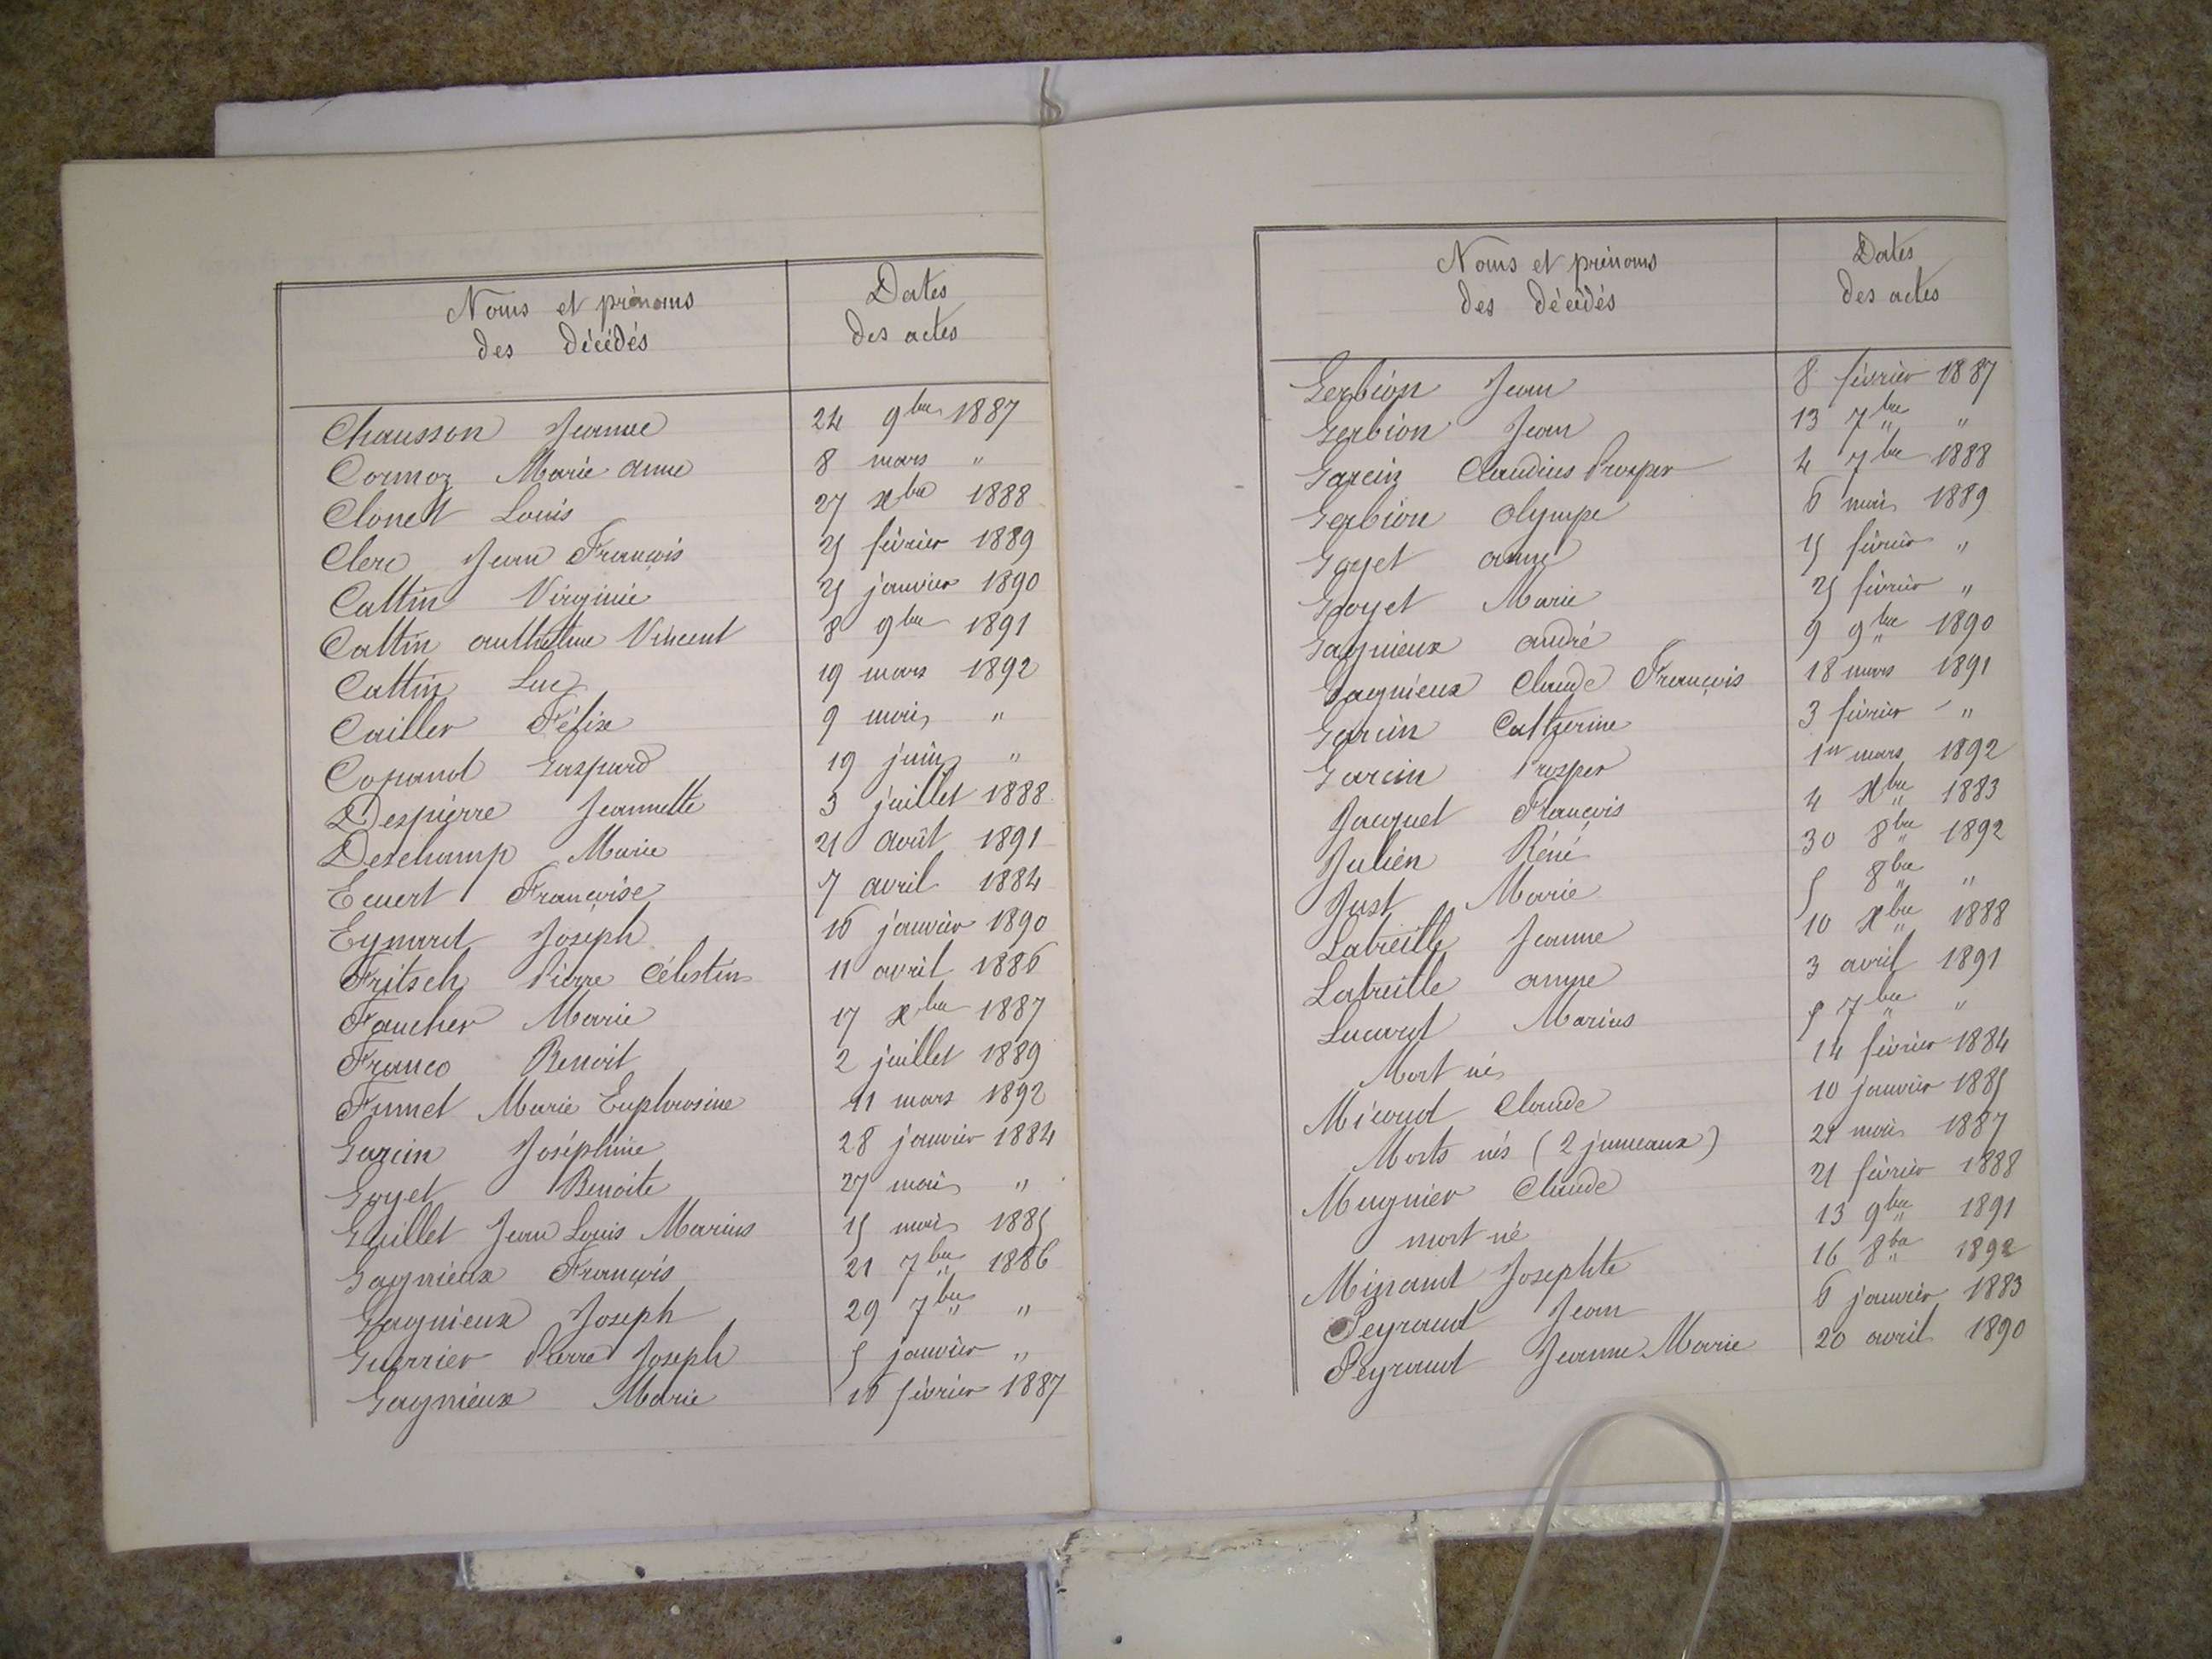 Noms et prénoms
des décédés
Dates
des actes
Chausson Jeanne 24 9bre 1887
Cormoz Marie Anne 8 mars "
Clonet Louis 27 xbre 1888
Clerc Jean François 25 février 1889
Cattin Virginie 25 janvier 1890
Cattin Anthelme Vincent 8 9bre 1891
Cattin Luc 19 mars 1892
Cailler Félix 9 mai "
Gaspard 19 juin "
Despierre Jeannette 3 juillet 1888
Deschamp Marie 21 août 1891
Françoise 7 avril 1884
Eynard Joseph 16 janvier 1890
Fritsch Pierre Célestin 11 avril 1886
Faucher Marie 17 xbre 1887
Franco Benoit 2 juillet 1889
Fumet Marie Euphrosine 11 mars 1892
Garcin Joséphine 28 janvier 1884
Goyet Benoite 27 mai "
Guillet Jean Louis Marius 15 mai 1885
Gagnieux François 21 7bre 1886
Gagnieux Joseph 29 7bre "
Guerrier Pierre Joseph 5 janvier "
Gagnieux Marie 16 février 1887
Noms et prénoms
des décédés
Dates
des actes
Gerbion Jean 8 février 1887
Gerbion Jean 13 7bre "
Garcin Claudius Prosper 4 7bre 1888
Gerbion Olympe 6 mai 1889
Goyet Anne 15 février "
Goyet Marie 25 février "
Gagnieux André 9 9bre 1890
Gagnieux Claude François 18 mars 1891
Garcin Catherine 3 février "
Garcin Prosper 1er mars 1892
Jacquet François 4 xbre 1883
Julien Réné 30 8bre 1892
Just Marie 5 8bre "
Latreille Jeanne 10 xbre 1888
Latreille Anne 3 avril 1891
Marius 5 7bre "
Mort né 14 février 1884
Micoud Claude 10 janvier 1885
Morts nés (2 jumeaux) 21 mai 1887
Mugnier Claude 21 février 1888
mort né 13 9bre 1891
Minaud Josephte 16 8bre 1892
Peyraud Jean 6 janvier 1883
Peyraud Jeanne Marie 20 avril 1890